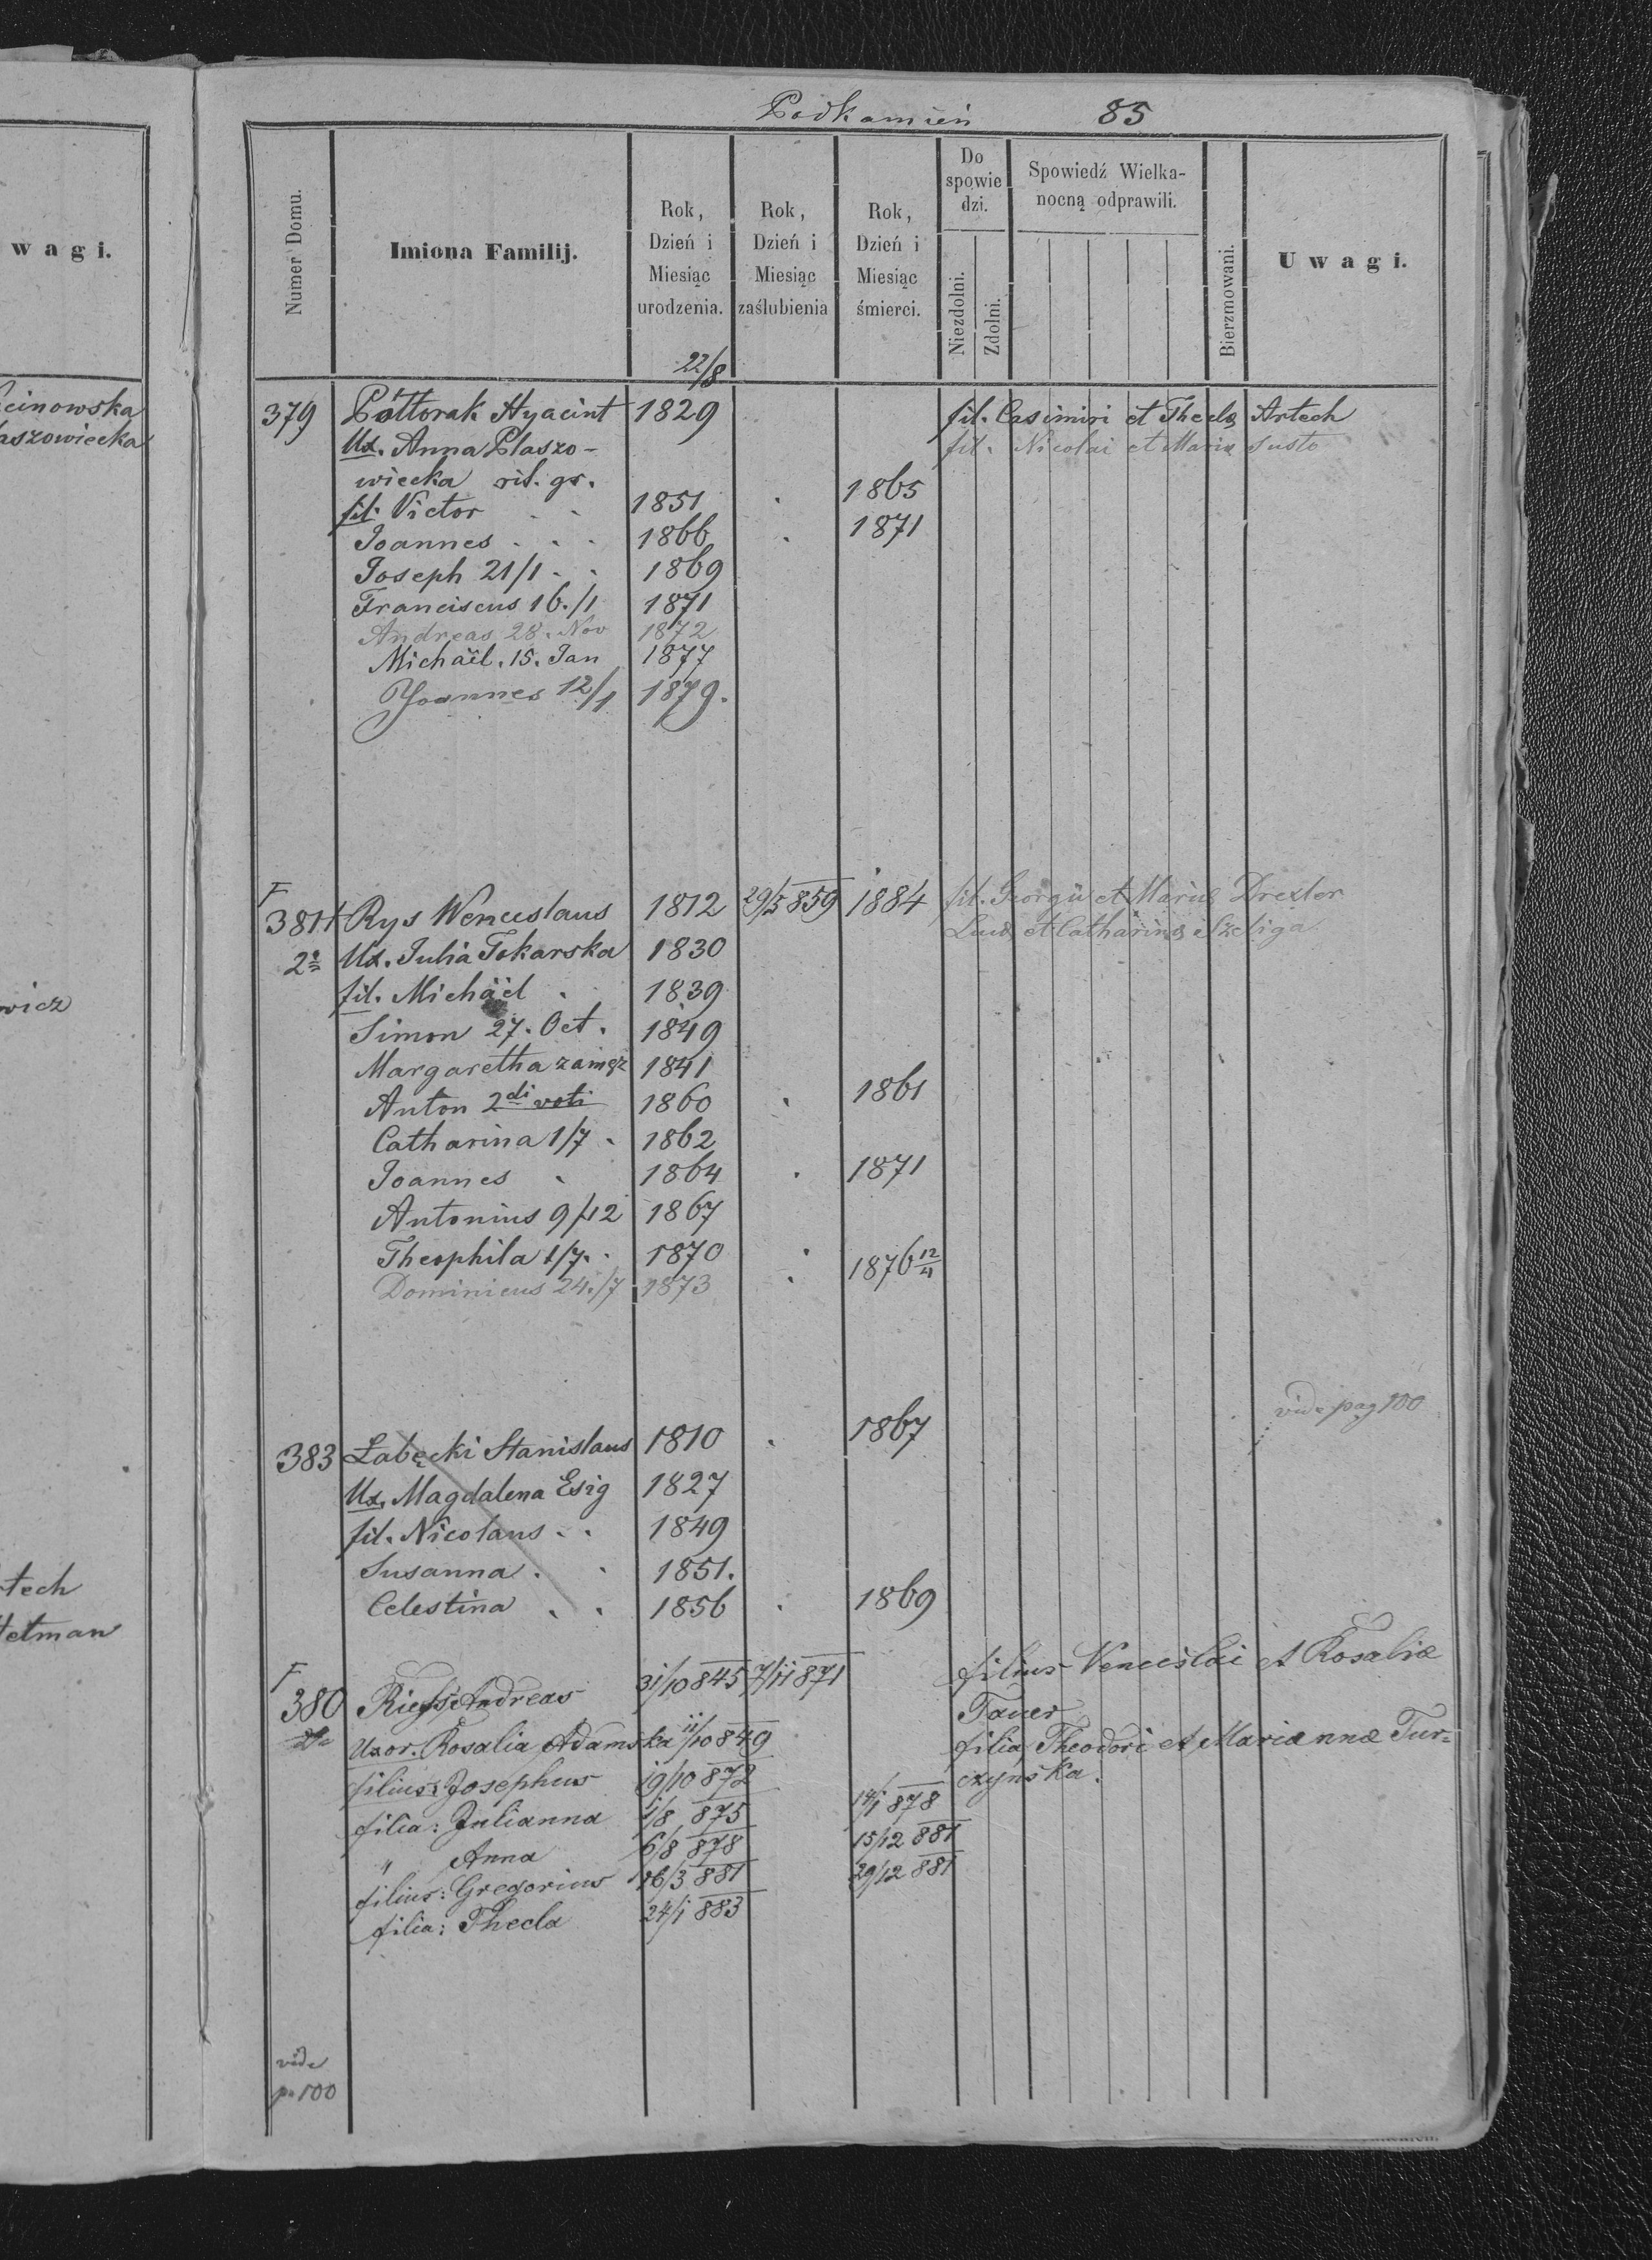 Podkamień 85
w a g i.
Numer Domu.
Imiona Familij.
Rok, Dzień i Miesiąc urodzenia.
Rok, Dzień i Miesiąc zaślubienia
Rok, Dzień i Miesiąc śmierci.
Do spowie dzi.
Niezdolni.
Zdolni.
Spowiedź Wielka-
nocną odprawili.
Bierzmowani.
U w a g i.
22/8
379 Półtorak Hyacint 1829 fil. Casimiri et Theclæ Artech
Ux. Anna Płaszo- fil. Nicolai et Maria Susto
wiecka rit. gr.
fil. Victor 1851 1865
Joannes 1866 1871
Joseph 21/1 1869
Franciscus 16./1 1871
Andreas 28. Nov 1872
Michaël. 15. Jan 1877
Joannes 12/1 1879.
381 Rys Wenceslaus 1812 29/5 859 1884 fil. Georgii et Mariæ Drexler
Lucæ et Catharinæ Szeliga
Ux. Julia Tokarska 1830
fil. Michaël 1839
Simon 27. Oct. 1849
Margaretha zamęz 1841
Anton 2di voti 1860 1861
Catharina 1/7 1862
Joannes 1864 1871
Antonius 9/12 1867
Theophila 1/7. 1870
Dominicus 24./7 1873 1876 12/4
vide pag 100
383 Łabęcki Stanislaus 1810 1867
Ux. Magdalena Esig 1827
fil. Nicolaus 1849
Susanna 1851.
Celestina 1856 1869
380 Andreas 31/10 845 7/11 871 filius Venceslai et Rosaliæ
Tauer
Uxor. Rosalia Adamska 11/10 849 filia Theodori et Mariannæ Tur-
czyńska.
filius: Josephus 19/10 872
filia: Julianna 1/8 875 878
" Anna 6/8 878 15/12 881
filius: Gregorius 16/3 881 29/12 881
filia: Thecla 24/1 883
vide
p. 100
cinowska
aszowiecka
wicz
tech
Hetman